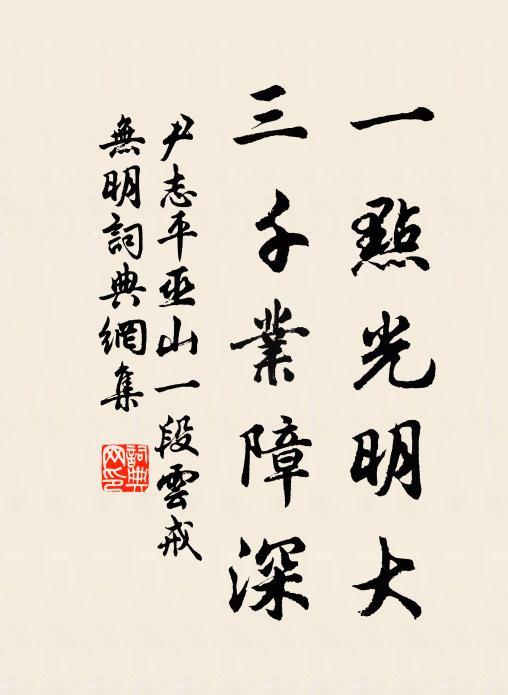 一點光明大
三千業障深
尹志平巫山一段雲戒
無明詞典網集
詞典
网印